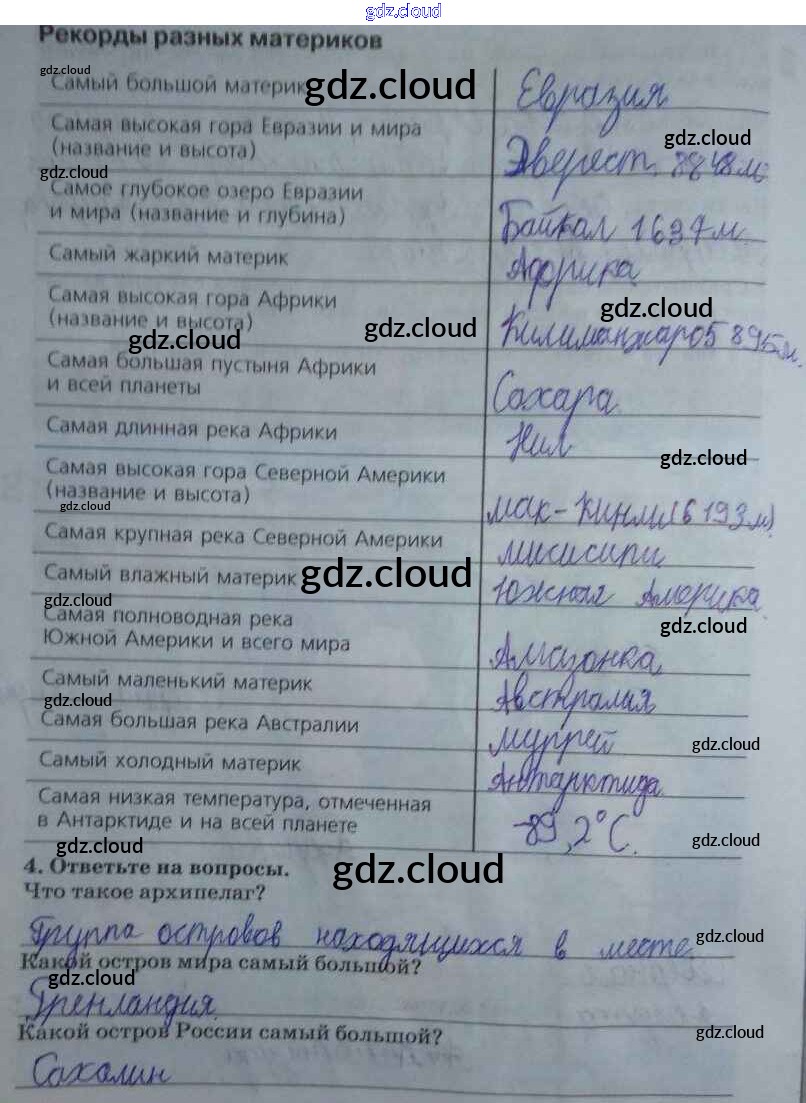 gdz.cloud
Рекорды разных материков
gdz.cloud
Самый большой материк Евразия
gdz.cloud
Самая высокая гора Евразии и мира
(название и высота) Эверест, 8848м.
gdz.cloud
gdz.cloud
Самое глубокое озеро Евразии
и мира (название и глубина) Байкал 1637м.
Самый жаркий материк Африка
Самая высокая гора Африки
(название и высота) Килиманжаро5895м.
gdz.cloud
gdz.cloud
gdz.cloud
Самая большая пустыня Африки
и всей планеты Сахара.
Самая длинная река Африки Нил
gdz.cloud
Самая высокая гора Северной Америки
(название и высота) мак-кинли(6193м).
gdz.cloud
Самая крупная река Северной Америки мисисипи
Самый влажный материк Южная Америка.
gdz.cloud
gdz.cloud
Самая полноводная река
Южной Америки и всего мира Амазонка
gdz.cloud
Самый маленький материк Австралия
gdz.cloud
Самая большая река Австралии муррей
gdz.cloud
Самый холодный материк Антарктида
Самая низкая температура, отмеченная
в Антарктиде и на всей планете -89,2°С.
gdz.cloud
4. Ответьте на вопросы.
gdz.cloud
Что такое архипелаг?
Группа островов находящихся в месте.
gdz.cloud
Какой остров мира самый большой?
gdz.cloud
Гренландия.
Какой остров России самый большой?
gdz.cloud
Сахалин